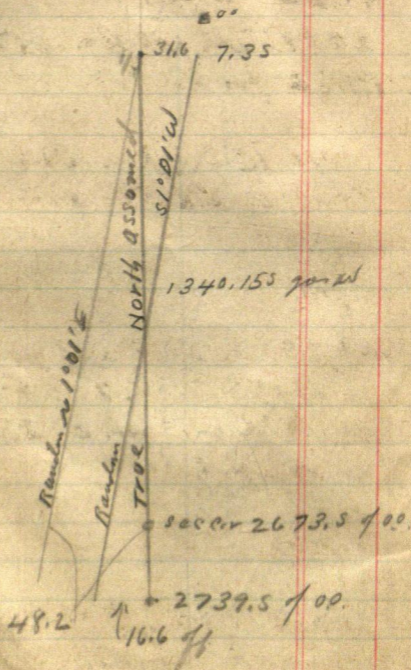 00
31.6 7.35
North assumed
S1°01'W
1340.155
Random N 1°01'E
Random
True
2673.5 of 00.
2739.5 of 00.
48.2
16.6 off